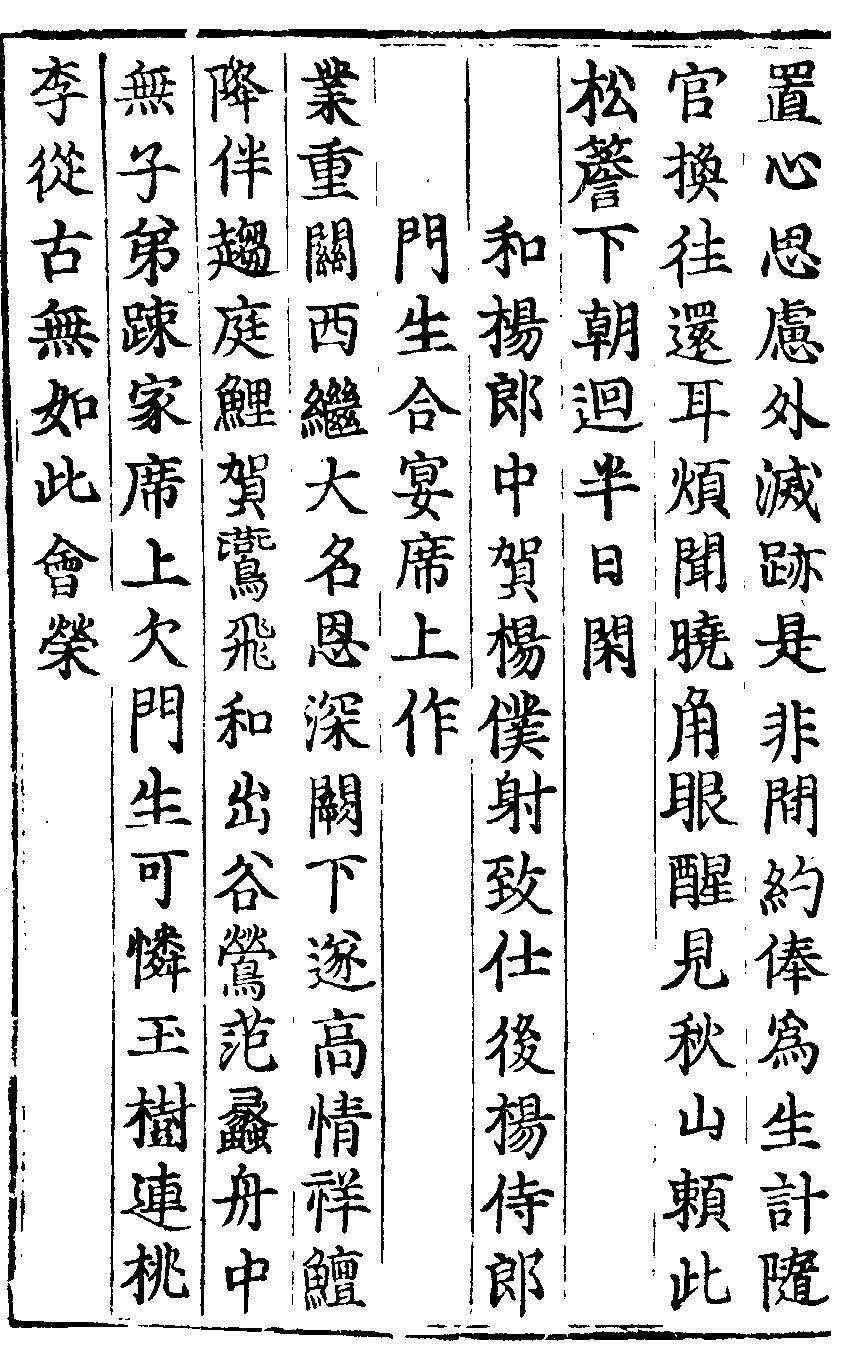 置心思慮外滅跡是非間約俸為生計隨
官換往還耳煩聞曉角眼醒見秋山賴此
松簷下朝迴半日閑
和楊郎中賀楊僕射致仕後楊侍郎
門生合宴席上作
業重關西繼大名恩深闕下遂高情祥鱣
降伴趨庭鯉賀鷰飛和出谷鶯范蠡舟中
無子弟踈家席上欠門生可憐玉樹連桃
李從古無如此會榮